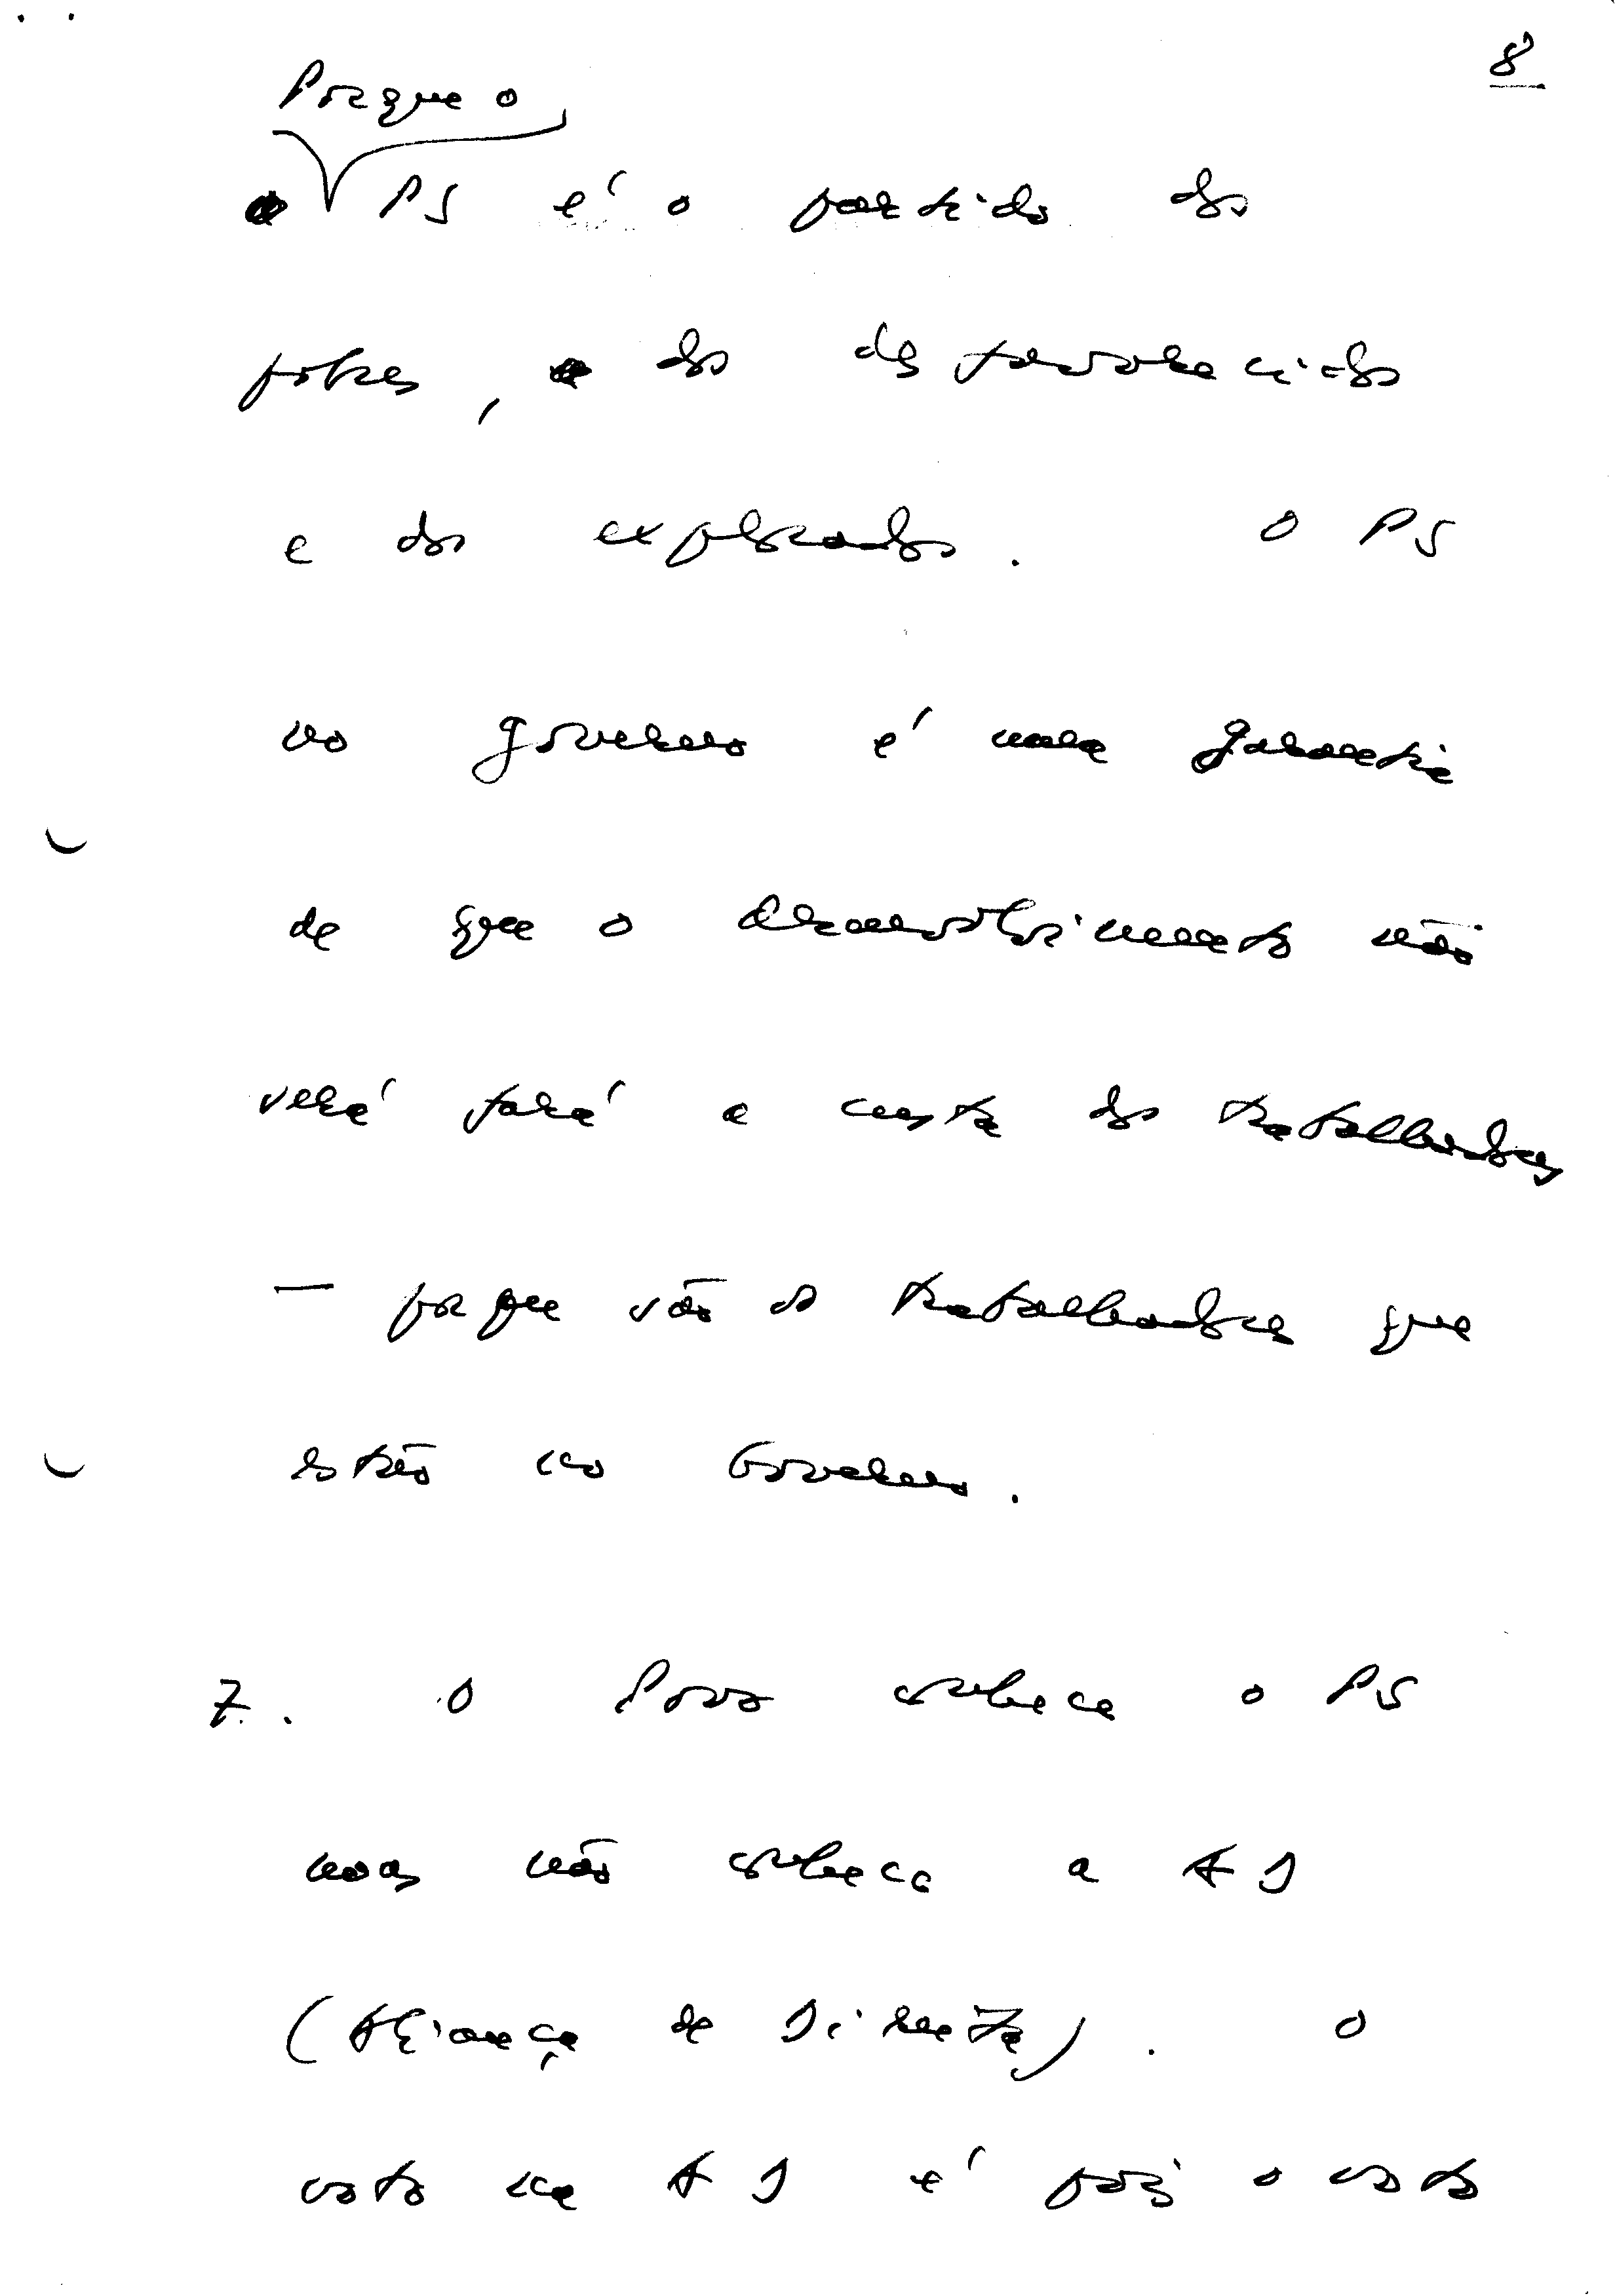 8
Porque o
PS é o partido dos
pobres, dos desfavorecidos
e dos explorados. O PS
no governo é uma garantia
de que o desenvolvimento não
será fará a custa dos trabalhadores
— porque são os trabalhadores que
estão no Governo.
7. O Povo conhece o PS
mas não conhece a AD
(Aliança de Direita). O
voto na AD é pois o voto